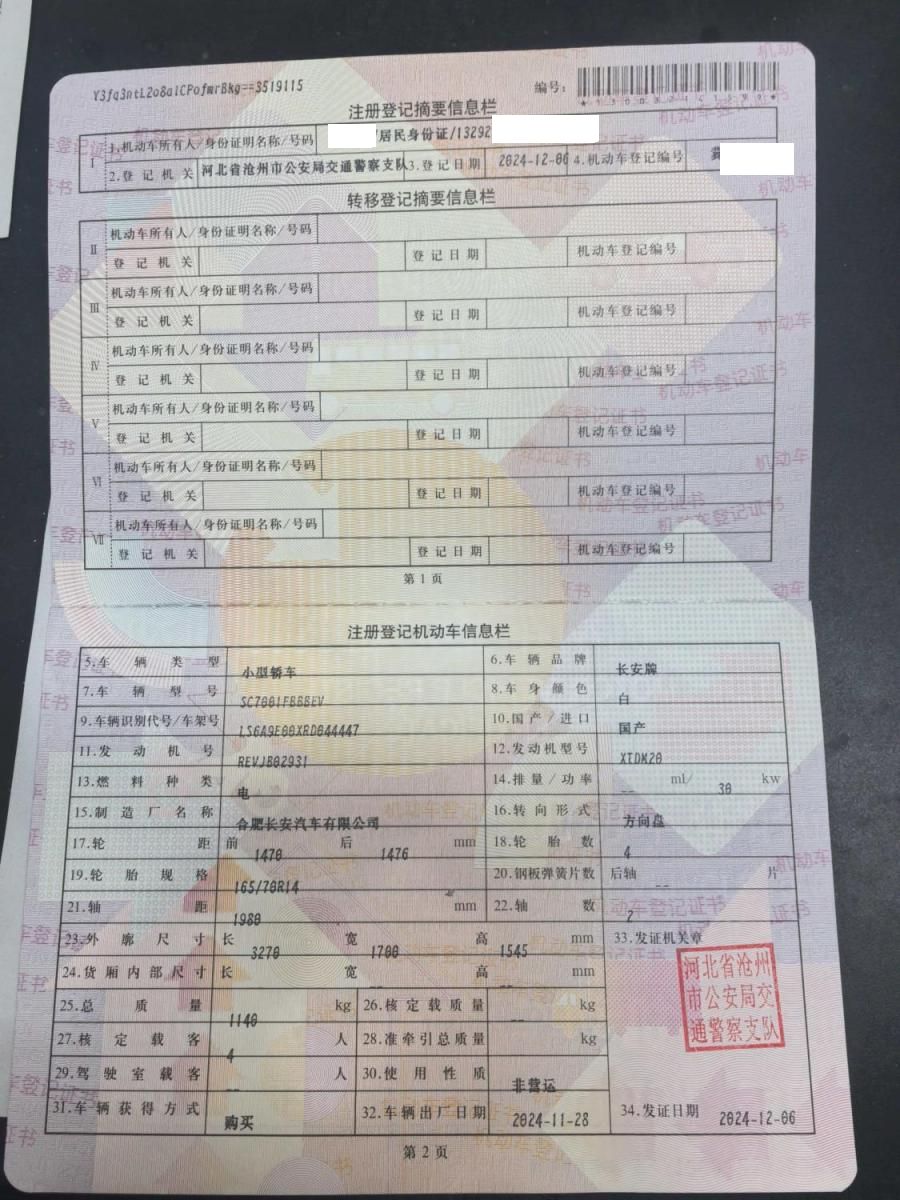 Y3fq3ntL2o8alCPofmrBkg==3519115
编号:
注册登记摘要信息栏
I 1.机动车所有人/身份证明名称/号码 /居民身份证/13292
2.登记机关 河北省沧州市公安局交通警察支队 3.登记日期 2024-12-06 4.机动车登记编号
转移登记摘要信息栏
II 机动车所有人/身份证明名称/号码
登记机关 登记日期 机动车登记编号
III 机动车所有人/身份证明名称/号码
登记机关 登记日期 机动车登记编号
IV 机动车所有人/身份证明名称/号码
登记机关 登记日期 机动车登记编号
V 机动车所有人/身份证明名称/号码
登记机关 登记日期 机动车登记编号
VI 机动车所有人/身份证明名称/号码
登记机关 登记日期 机动车登记编号
VII 机动车所有人/身份证明名称/号码
登记机关 登记日期 机动车登记编号
第1页
注册登记机动车信息栏
5.车辆类型 小型轿车 6.车辆品牌 长安牌
7.车辆型号 SC7001FBBBEV 8.车身颜色 白
9.车辆识别代号/车架号 LS6A9E00XRD044447 10.国产/进口 国产
11.发动机号 REVJB02931 12.发动机型号 XTDM20
13.燃料种类 电 14.排量/功率 -- ml/ 30 kw
15.制造厂名称 合肥长安汽车有限公司 16.转向形式 方向盘
17.轮距 前 1470 后 1476 mm 18.轮胎数 4
19.轮胎规格 165/70R14 20.钢板弹簧片数 后轴 -- 片
21.轴距 1980 mm 22.轴数 2
23.外廓尺寸 长 3270 宽 1700 高 1545 mm 33.发证机关章
24.货厢内部尺寸 长 宽 -- 高 -- mm
25.总质量 1140 kg 26.核定载质量 -- kg
27.核定载客 4 人 28.准牵引总质量 kg
29.驾驶室载客 -- 人 30.使用性质 非营运
31.车辆获得方式 购买 32.车辆出厂日期 2024-11-28 34.发证日期 2024-12-06
河北省沧州
市公安局交
通警察支队
第2页